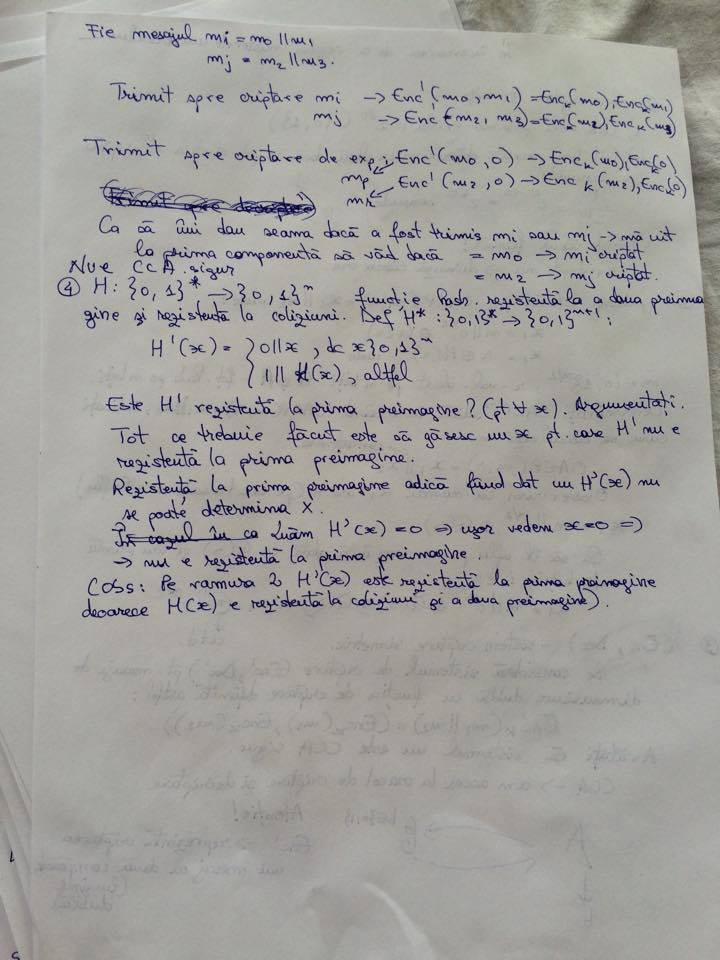 Fie mesajul mi = m0 || m1
mj = m2 || m3.
Trimit spre criptare mi → Enc'(m0, m1) = Enck(m0), Enck(m1)
mj → Enc'(m2, m3) = Enck(m2), Enck(m3)
Trimit spre criptare de exp: Enc'(m0, 0) → Enck(m0), Enck(0)
mp
Enc'(m2, 0) → Enck(m2), Enck(0)
mr
Ca să îmi dau seama dacă a fost trimis mi sau mj → mă uit
la prima componentă să văd dacă = m0 → mi criptat
= m2 → mj criptat.
Nu e CCA sigur
④ H: {0,1}* → {0,1}^n funcție hash rezistentă la a doua preima
gine și rezistentă la coliziuni. Def H* : {0,1}* → {0,1}^n+1 :
H'(x) = { 0||x , dc x {0,1}^n
{ 1 || H(x), altfel
Este H' rezistentă la prima preimagine? (pt ∀ x). Argumentați.
Tot ce trebuie făcut este să găsesc un x pt. care H' nu e
rezistentă la prima preimagine.
Rezistentă la prima preimagine adică fiind dat un H'(x) nu
se poate determina x.
În cazul în ca Luăm H'(x) = 0 ⇒ ușor vedem x=0 ⇒
→ nu e rezistentă la prima preimagine.
(Obs: Pe ramura 2 H'(x) este rezistentă la prima preimagine
deoarece H(x) e rezistentă la coliziuni și a doua preimagine).